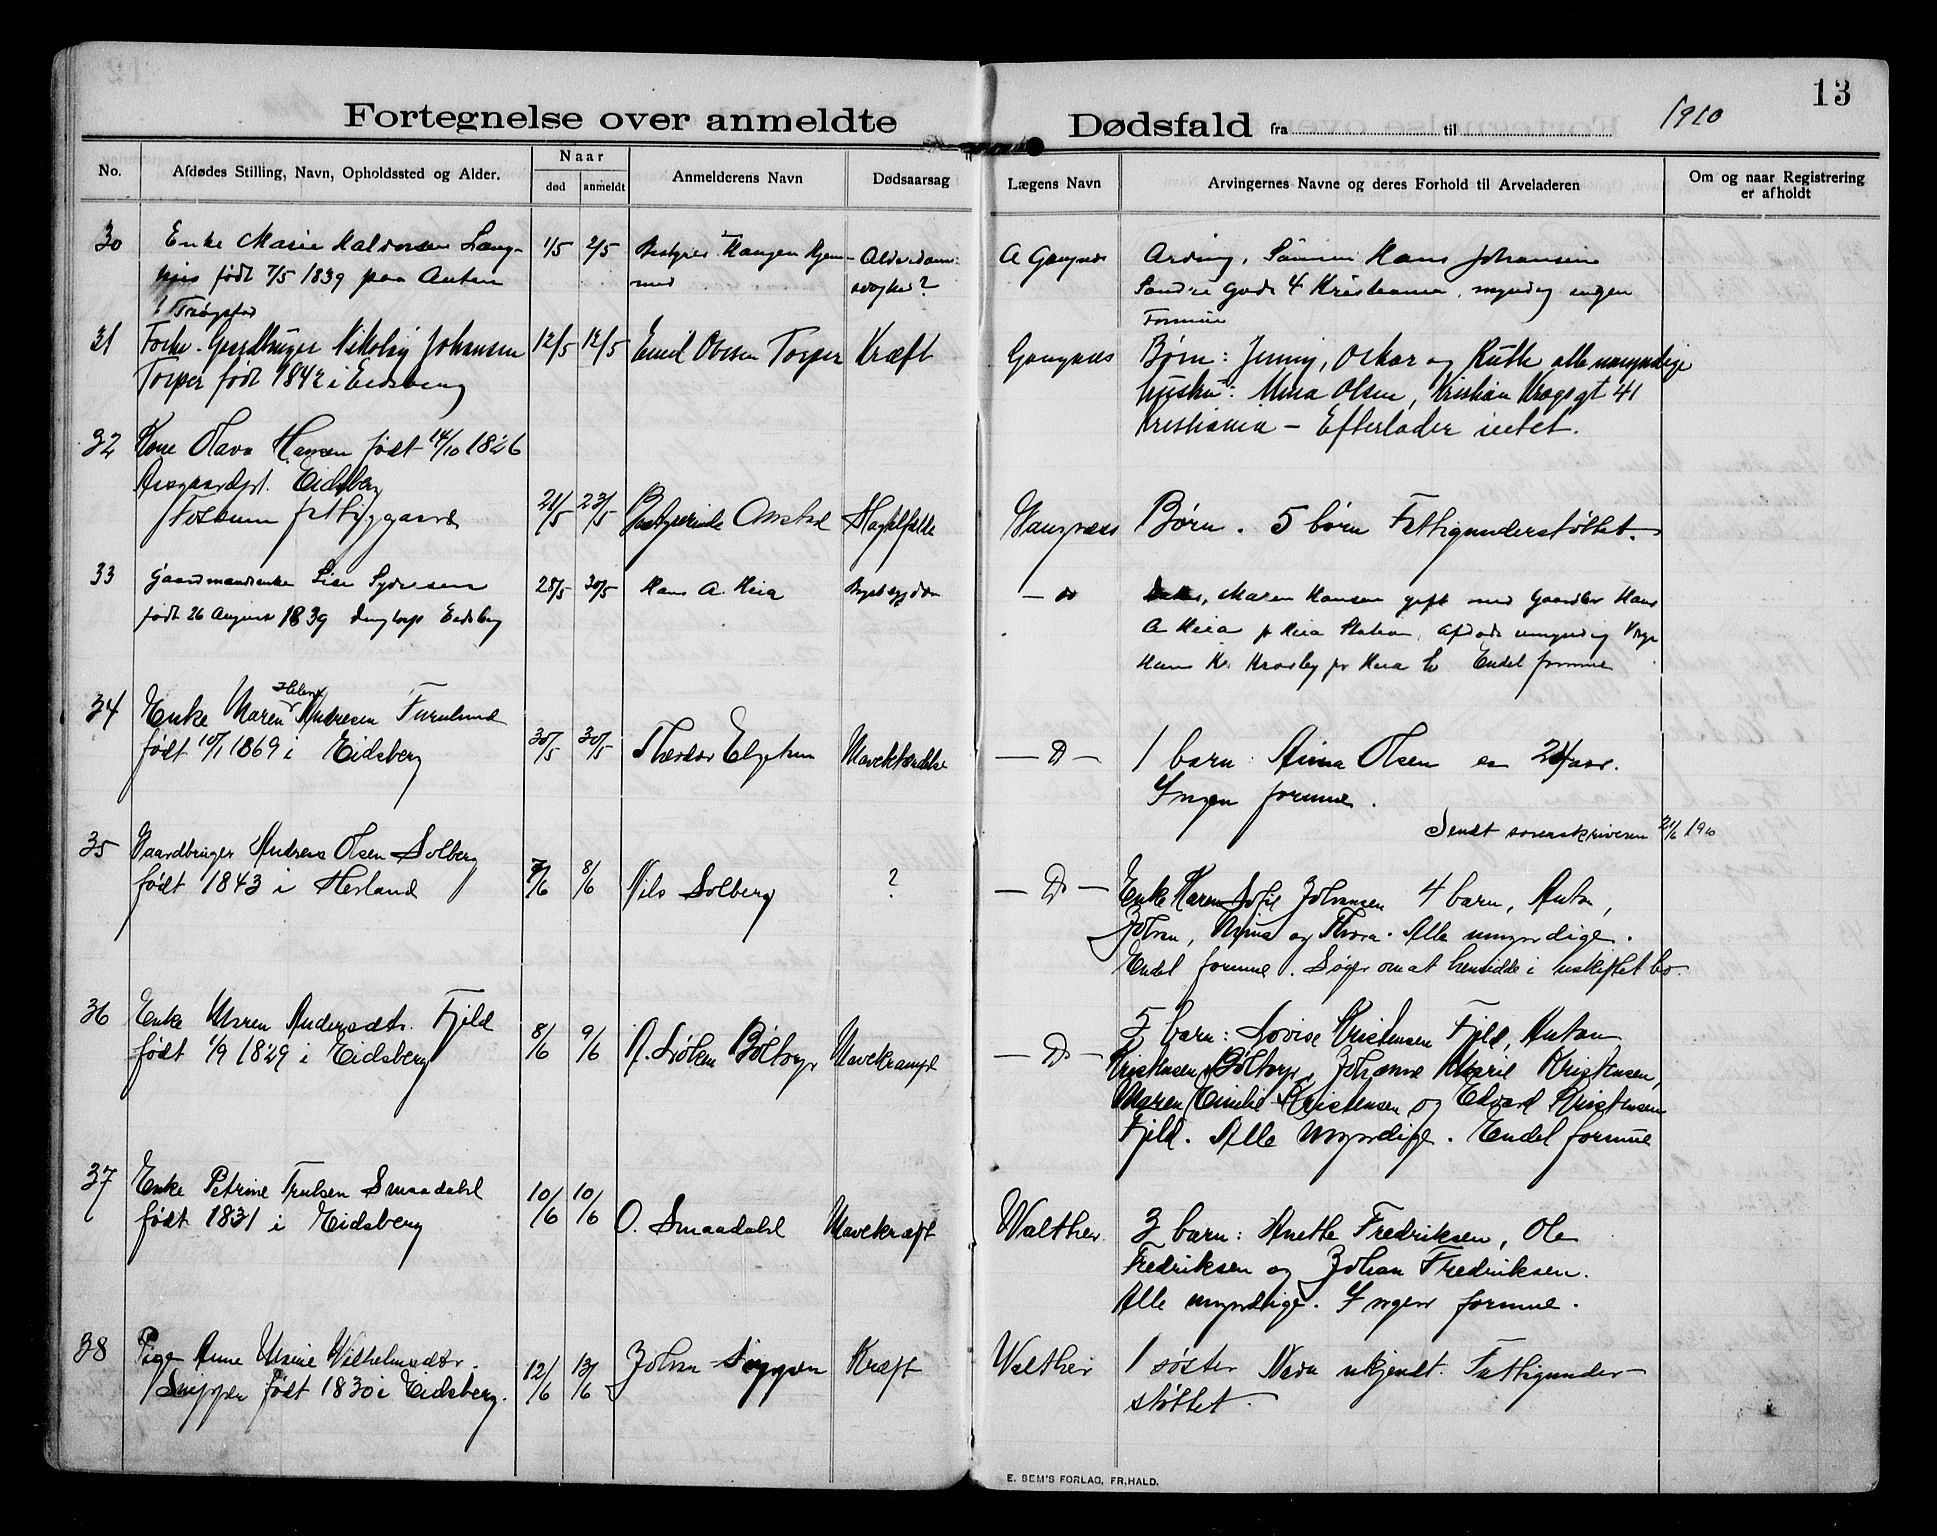 13
Fortegnelse over anmeldte Dødsfald fra til 1910
No.
Afdødes Stilling, Navn, Opholdssted og Alder.
Naar
død anmeldt
Anmelderens Navn
Dødsaarsag
Lægens Navn
Arvingernes Navne og deres Forhold til Arveladeren
Om og naar Registrering
er afholdt
30 Enke Marie Haldorsen
født 7/5 1839 paa
i Trøgstad
1/5 2/5
Arving, Sønnen Hans Johansen
Søndre Gade 4 Kristiania, myndig ingen
Formue
31 Gaardbruger Nikolaj Johansen
Torper født 1842 i Eidsberg
12/5 12/5 Emil Olsen Torper Kræft
Børn: Jenny, Oskar og Ruth alle umyndige
Hustru: Mina Olsen, Kristian Krogsgt 41
Kristiania – Efterlader intet.
32 Kone Olava Hansen født 14/10 1826
Eidsberg
fattiggaard
21/5 23/5 Bestyrerinde Onstad
Børn. 5 børn Fattigunderstøttet.
33 Gaardmandsenke Lise Syversen
født 26 August 1839 Eidsberg
28/5 30/5 Hans A. Heia Brystsygdom
– do
Maren Hansen gift med Gaardbr Hans
A Heia pr Heia Station, Afdøde umyndig Verge
Hans Kr. Krosby pr Heia St Endel formue
34 Enke Maren Helene Andresen Furulund
født 10/1 1869 i Eidsberg
30/5 30/5 Theodor
– D –
1 barn: Anna Olsen er 24 aar.
Ingen formue.
Sendt sorenskriveren 21/6 1910
35 Gaardbruger Andreas Olsen Solberg
født 1843 i Herland
7/6 8/6 Nils Solberg ?
– D –
Enke Karen Sofie Johansen 4 barn, Anton,
Johan, Anna og Thora. Alle umyndige.
Endel formue. Søger om at hensidde i uskiftet bo.
36 Enke Maren Andersdtr. Fjeld
født 1/9 1829 i Eidsberg
8/6 9/6 A. Mavekrampe
– D –
5 barn: Lovise Kristensen Fjeld, Anton
Kristensen Johanne Marie Kristensen,
Maren Emilie Kristensen og Edvard Kristensen
Fjeld. Alle myndige. Endel formue
37 Enke Petrine Trulsen Smaadahl
født 1831 i Eidsberg
10/6 10/6 O. Smaadahl Mavekræft
Walther
3 barn: Anethe Fredriksen, Ole
Fredriksen og Johan Fredriksen.
Alle myndige. Ingen formue.
38 Pige Anne Marie Vilhelmsdtr.
Snippen født 1830 i Eidsberg.
12/6 13/6 Johan Snippen Kræft
Walther
1 søster Navn ukjendt. Fattigunder-
støttet.
E. SEM'S FORLAG, FR.HALD.